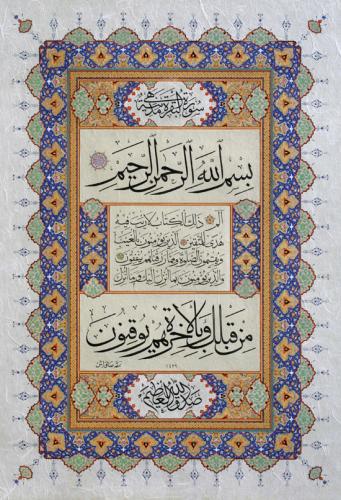 سورة البقرة مدنية
بسم الله الرحمن الرحيم
الم ذلك الكتاب لا ريب فيه
هدى للمتقين الذين يؤمنون بالغيب
ويقيمون الصلوة ومما رزقناهم ينفقون
والذين يؤمنون بما أنزل إليك وما أنزل
من قبلك وبالآخرة هم يوقنون
١٤٢٩
صدق الله العظيم